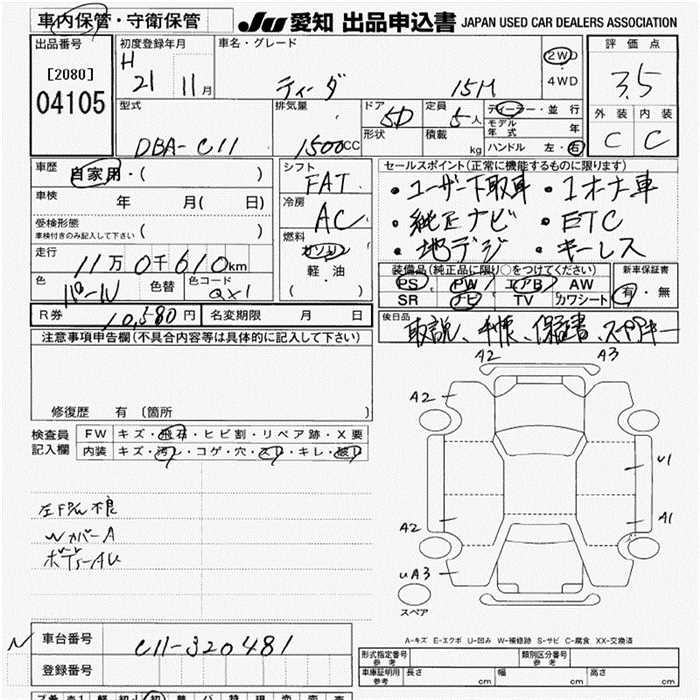 車内保管・守衛保管
JU 愛知 出品申込書 JAPAN USED CAR DEALERS ASSOCIATION
出品番号
[2080]
04105
初度登録年月
H 21 11月
車名・グレード
ティーダ 15M
2WD
4WD
評価点
3.5
外装 内装
C C
型式
DBA-C11
排気量
1500CC
ドア
5D
形状
定員
5人
積載
kg
ディーラー・並行
モデル年式 年
ハンドル 左・右
車歴
自家用・( )
車検
年 月( 日)
受検形態
車検付きのみ記入して下さい ( )
走行
11万0千610km
色
パール 色替
色コード
QX1
シフト
FAT
冷房
AC
燃料
ガソリン
軽・油
( )
セールスポイント(正常に機能するものに限ります)
・ユーザー下取車 ・1オーナ車
・純正ナビ ・ETC
・地デジ ・キーレス
装備品(純正品に限り○をつけてください)
PS PW エアB AW
SR ナビ TV カワシート
新車保証書
有・無
R券 10,580円 名変期限 月 日
後日品
取説、手帳、保証書、スペアキー
注意事項申告欄(不具合内容等は具体的に記入して下さい)
修復歴 有 〔箇所 〕
検査員
記入欄
FW キズ・飛石・ヒビ割・リペア跡・X要
内装 キズ・汚レ・コゲ・穴・スレ・キレ・破レ
WカバーA
ボディーAU
A2 A3
A2
U1
A2
A1
UA3
スペア
A-キズ E-エクボ U-凹み W-補修跡 S-サビ C-腐食 XX-交換済
N
車台番号
C11-320481
登録番号
形式指定番号
参考
類別区分番号
参考
車庫証明用
参考
長さ cm 幅 cm 高さ cm